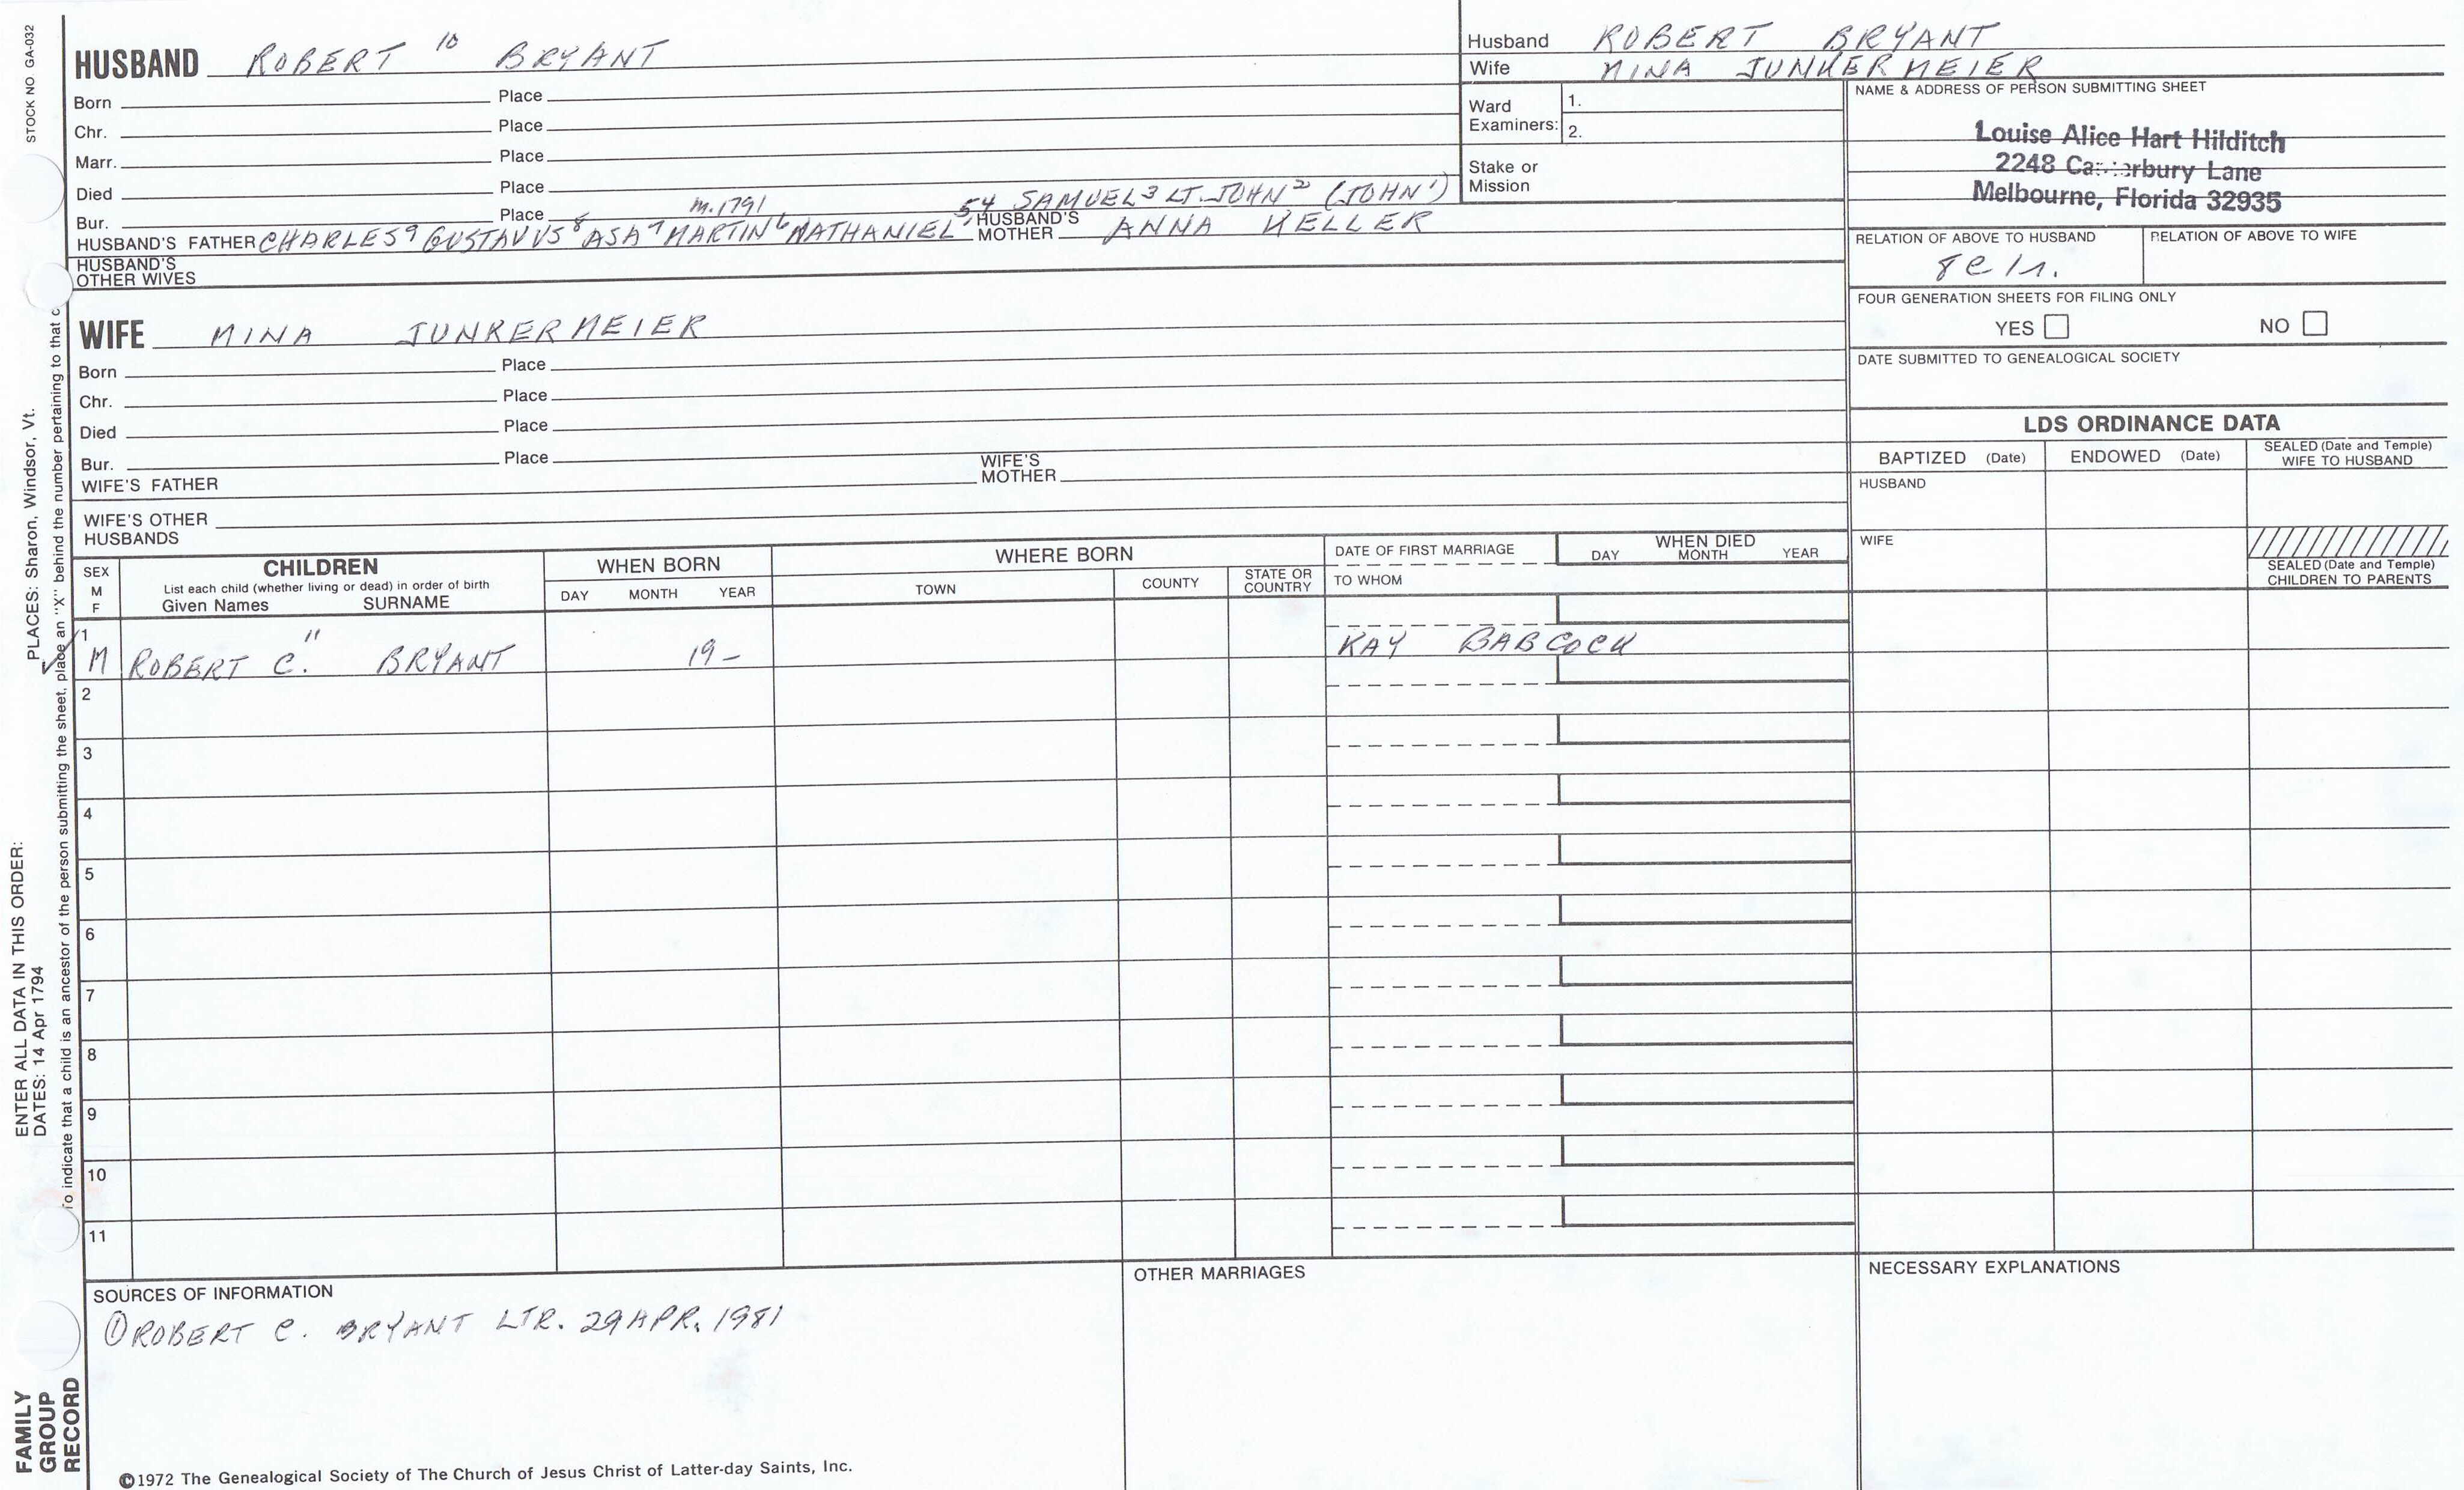 STOCK NO GA-032
HUSBAND ROBERT 10 BRYANT
Born Place
Chr. Place
Marr. Place
Died Place
Bur. Place
m. 1791
54 SAMUEL3 LT. JOHN2 (JOHN1)
HUSBAND'S FATHER CHARLES9 GUSTAVUS8 ASA7 MARTIN6 NATHANIEL HUSBAND'S MOTHER ANNA KELLER
HUSBAND'S OTHER WIVES
Husband ROBERT BRYANT
Wife MINA JUNKERMEIER
Ward Examiners: 1.
2.
Stake or Mission
NAME & ADDRESS OF PERSON SUBMITTING SHEET
Louise Alice Hart Hilditch
2248 Lane
Melbourne, Florida 32935
RELATION OF ABOVE TO HUSBAND RELATION OF ABOVE TO WIFE
FOUR GENERATION SHEETS FOR FILING ONLY
YES NO
DATE SUBMITTED TO GENEALOGICAL SOCIETY
WIFE MINA JUNKERMEIER
Born Place
Chr. Place
Died Place
Bur. Place
WIFE'S FATHER WIFE'S MOTHER
WIFE'S OTHER HUSBANDS
LDS ORDINANCE DATA
BAPTIZED (Date) ENDOWED (Date) SEALED (Date and Temple) WIFE TO HUSBAND
HUSBAND
WIFE
SEALED (Date and Temple) CHILDREN TO PARENTS
SEX M F
CHILDREN
List each child (whether living or dead) in order of birth
Given Names SURNAME
WHEN BORN
DAY MONTH YEAR
WHERE BORN
TOWN COUNTY STATE OR COUNTRY
DATE OF FIRST MARRIAGE
TO WHOM
WHEN DIED
DAY MONTH YEAR
1 M ROBERT C.11 BRYANT 19- KAY BABCOCK
2
3
4
5
6
7
8
9
10
11
SOURCES OF INFORMATION
① ROBERT C. BRYANT LTR. 29 APR. 1981
OTHER MARRIAGES
NECESSARY EXPLANATIONS
©1972 The Genealogical Society of The Church of Jesus Christ of Latter-day Saints, Inc.
PLACES: Sharon, Windsor, Vt.
ENTER ALL DATA IN THIS ORDER:
DATES: 14 Apr 1794
To indicate that a child is an ancestor of the person submitting the sheet, place an "X" behind the number pertaining to that
FAMILY
GROUP
RECORD